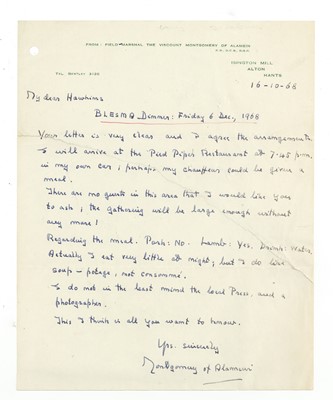 FROM: FIELD-MARSHAL THE VISCOUNT MONTGOMERY OF ALAMEIN
K.G. G.C.B. D.S.O.
ISINGTON MILL,
ALTON
HANTS
16-10-68
My dear Hawkins
BLESMA Dinner: Friday 6 Dec, 1968
Your letter is very clear and I agree the arrangements.
I will arrive at the Pied Piper Restaurant at 7.45 p.m.
in my own car; perhaps my chauffeur could be given a
meal.
There are no guests in this area that I would like you
to ask; the gathering will be large enough without
any more!
Regarding the meal. Pork: No. Lamb: Yes. Drink: Water.
Actually I eat very little at night; but I do like
soup - potage, not consommé.
I do not in the least mind the local Press, and a
photographer.
This I think is all you want to know.
Yrs. sincerely
Montgomery of Alamein